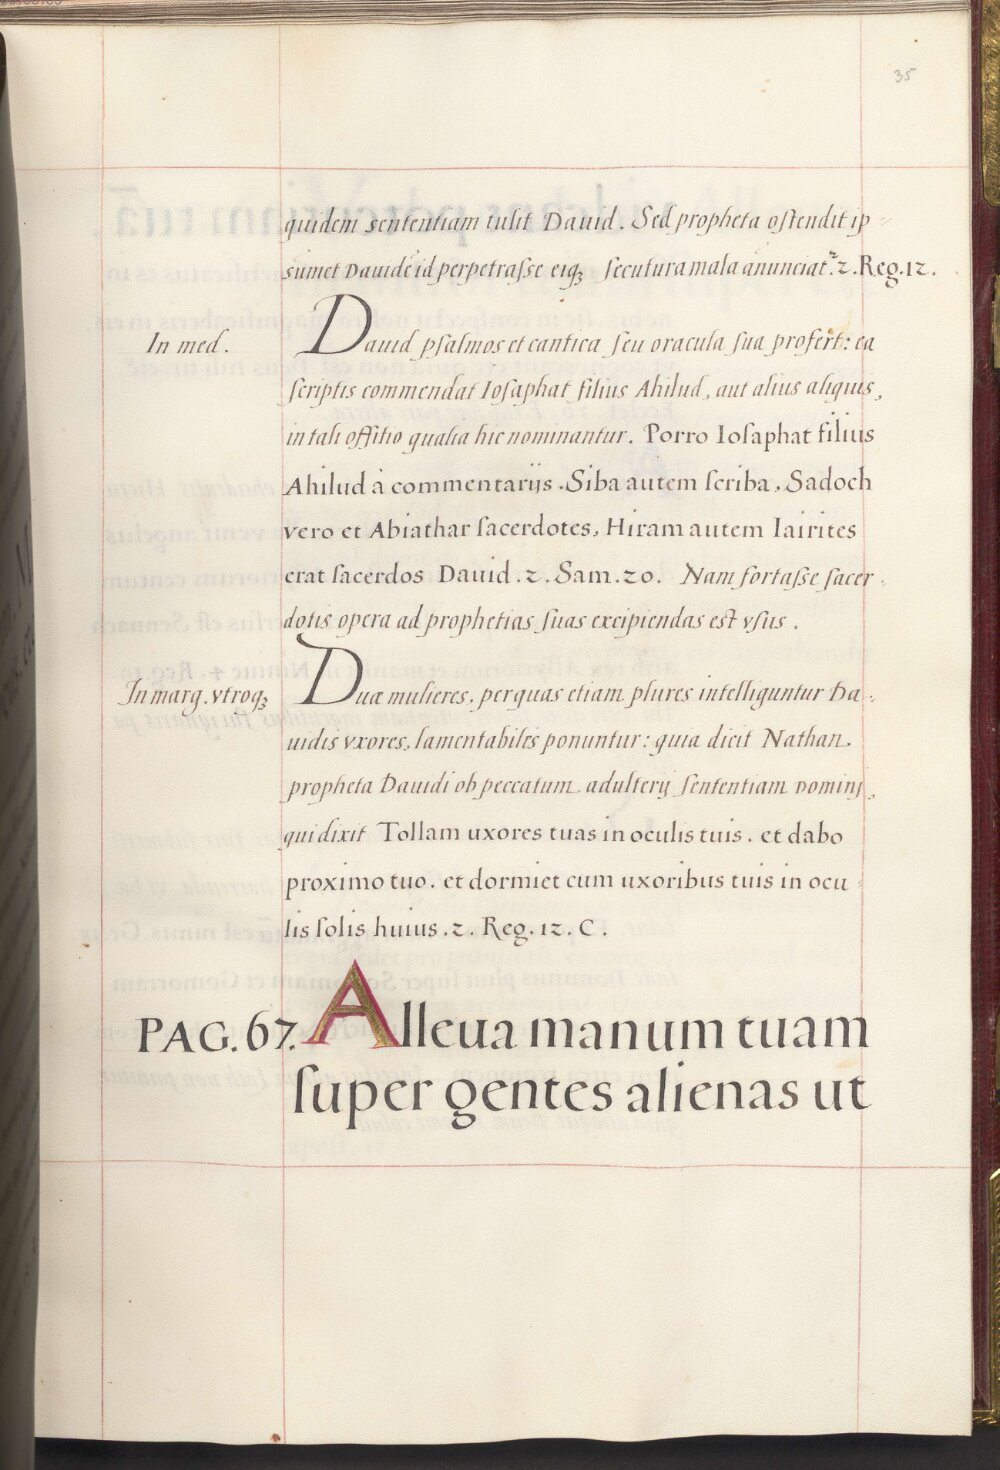 35
quidem sententiam tulit Dauid. Sed propheta ostendit ip-
sumet Dauidē id perpetrasse eiqꝫ secutura mala anunciat. 2. Reg. 12.
In med. Dauid psalmos et cantica seu oracula sua profert: ea
scriptis commendat Iosaphat filius Ahilud, aut alius aliquis,
in tali offitio qualia hic nominantur. Porro Iosaphat filius
Ahilud à commentarijs. Siba autem scriba, Sadoch
vero et Abiathar sacerdotes, Hiram autem Iairites
erat sacerdos Dauid. 2. Sam. 20. Nam fortasse sacer-
dotis opera ad prophetias suas excipiendas est vsus.
In marg. vtroqꝫ Duæ mulieres, per quas etiam plures intelliguntur Da-
uidis vxores, lamentabiles ponuntur: quia dicit Nathan
propheta Dauidi ob peccatum adulterij sententiam Domini,
qui dixit Tollam uxores tuas in oculis tuis. et dabo
proximo tuo. et dormiet cum uxoribus tuis in ocu-
lis solis huius. 2. Reg. 12. C.
PAG. 67. Alleua manum tuam
super gentes alienas ut